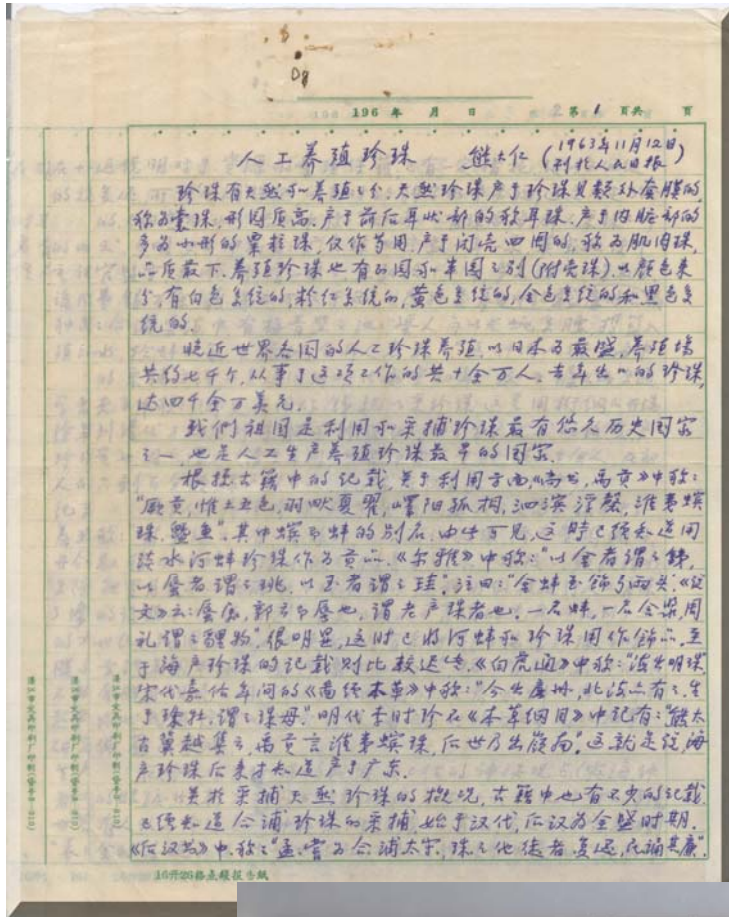 196 年 月 日 第 1 页共 页
人工养殖珍珠 熊大仁 (1963年11月12日
刊於人民日报)
珍珠有天然和养殖之分.天然珍珠产于珍珠贝类外套膜的,
称为壹珠,形圆质高.产于前后耳状部的称耳珠.产于内脏部的
多为小形的粟粒珠,仅作药用.产于闭壳四周的,称为肌肉珠,
品质最下.养殖珍珠也有正圆和半圆之别(附壳珠).以颜色来
分有白色系统的,粉红系统的,黄色系统的,金色系统的和黑色系
统的.
晚近世界各国的人工珍珠养殖,以日本为最盛,养殖场
共约七千个,从事于这项工作的共十余万人.去年出口的珍珠,
达四千余万美元.
我們祖国是利用和采捕珍珠最有悠久历史国家
之一,也是人工生产养殖珍珠最早的国家.
根据古籍中的记载,关于利用方面,《尚书,禹贡》中称:
"厥贡,惟土五色,羽畎夏翟,嶧阳孤桐,泗滨浮磬,淮夷蠙
珠,暨鱼".其中蠙即蚌的别名.由此可见,这时已经知道用
淡水河蚌珍珠作为贡品.《尔雅》中称:"以金者谓之銑,
以蜃者谓之珧,以玉者谓之珪".注曰:"金蚌玉飾弓两头.《说
文》云:蜃属,郭云即蜃也,谓老产珠者也.一名蚌,一名含漿,周
礼谓之貍物".很明显,这时已将河蚌和珍珠用作飾品.至
于海产珍珠的记载则比較迟些.《白虎通》中称:"海出明珠".
宋代嘉佑年间的《图经本草》中称:"今出廉州,北海亦有之.生
于珠牡,谓之珠母".明代李时珍在《本草纲目》中记有:"熊太
古冀越集云,禹贡言淮夷蠙珠,后世乃出嶺南".这就是说,海
产珍珠后来才知道产于广东.
关於采捕天然珍珠的概况,古籍中也有不少的记载.
已经知道合浦珍珠的采捕,始于汉代,后汉为全盛时期.
《后汉书》中称:"孟嘗为合浦太守,珠之他徒者复还,民诵其廉".
16开26格点綫报告紙